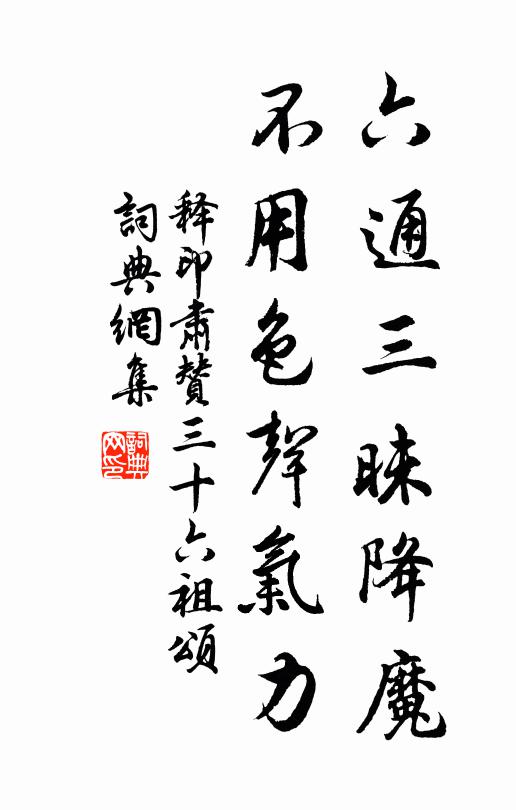 六通三昧降魔
不用色聲氣力
释印肅贊三十六祖頌
詞典網集
詞典
网印